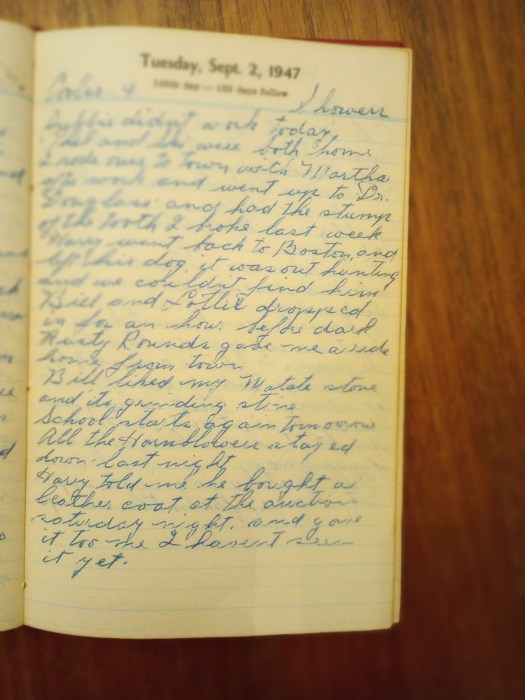 Tuesday, Sept. 2, 1947
245th day — 120 days follow
Cooler & Showers
didn't work today
and he were both home
I rode over to town with Martha
after work and went up to Dr.
Douglass and had the stump
of the tooth I broke last week
Harry went back to Boston, and
left his dog, it was out hunting
and we couldn't find him
Bill and Lottie dropped
in for an hour before dark
Rusty Rounds gave me a ride
home from town
Bill liked my Matate stone
and its grinding stone
School starts again tomorrow
All the Hornblowers stayed
down last night
Harry told me he bought a
leather coat at the auction
saturday night, and gave
it too me I havent seen
it yet.